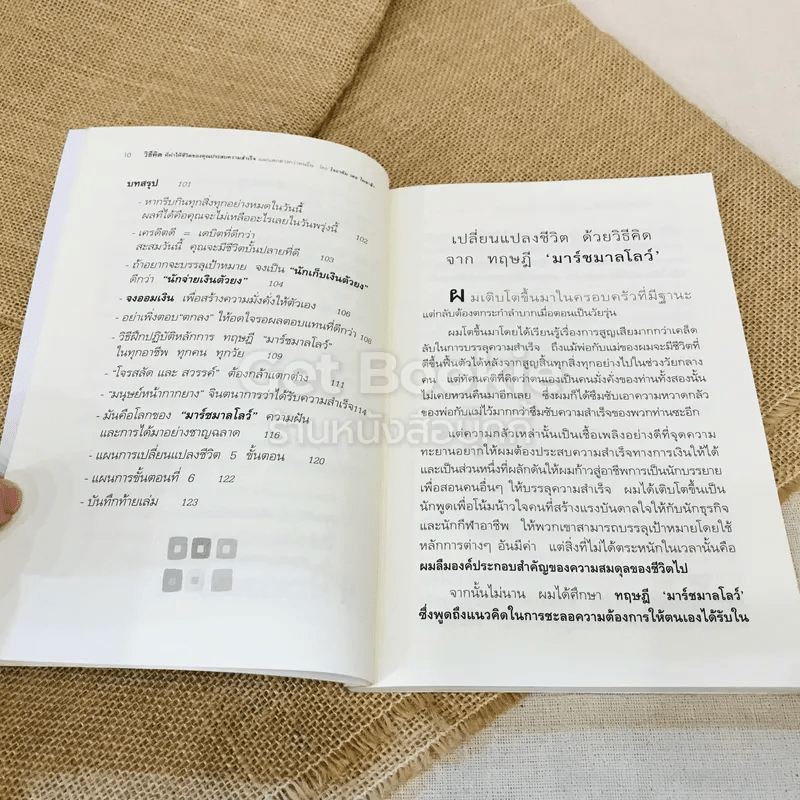 10 วิธีคิด ที่ทำให้ชีวิตของคุณประสบความสำเร็จ
บทสรุป 101
- หากรีบกินทุกสิ่งทุกอย่างหมดในวันนี้
ผลที่ได้คือคุณจะไม่เหลืออะไรเลยในวันพรุ่งนี้ 102
- เครดิตดี = เดบิตที่ดีกว่า
สะสมวันนี้ คุณจะมีชีวิตบั้นปลายที่ดี 103
- ถ้าอยากจะบรรลุเป้าหมาย จงเป็น "นักเก็บเงินตัวยง"
ดีกว่า "นักจ่ายเงินตัวยง" 104
- จงออมเงิน เพื่อสร้างความมั่งคั่งให้ตัวเอง 106
- อย่าเพิ่งตอบ "ตกลง" ให้อดใจรอผลตอบแทนที่ดีกว่า 106
- วิธีฝึกปฏิบัติหลักการ ทฤษฎี "มาร์ชมาลโลว์"
ในทุกอาชีพ ทุกคน ทุกวัย 109
- "โจรสลัด และ สวรรค์" ต้องกล้าแตกต่าง 111
- "มนุษย์หน้ากากยาง" จินตนาการว่าได้รับความสำเร็จ 114
- มันคือโลกของ "มาร์ชมาลโลว์" ความฝัน
และการได้มาอย่างชาญฉลาด 116
- แผนการเปลี่ยนแปลงชีวิต 5 ขั้นตอน 120
- แผนการขั้นตอนที่ 6 122
- บันทึกท้ายเล่ม 123
เปลี่ยนแปลงชีวิต ด้วยวิธีคิด
จาก ทฤษฎี 'มาร์ชมาลโลว์'
ผมเติบโตขึ้นมาในครอบครัวที่มีฐานะ
แต่กลับต้องตกระกำลำบากเมื่อตอนเป็นวัยรุ่น
ผมโตขึ้นมาโดยได้เรียนรู้เรื่องการสูญเสียมากกว่าเคล็ด
ลับในการบรรลุความสำเร็จ ถึงแม้พ่อกับแม่ของผมจะมีชีวิตที่
ดีขึ้นฟื้นตัวได้หลังจากสูญสิ้นทุกสิ่งทุกอย่างไปในช่วงวัยกลาง
คน แต่ทัศนคติที่คิดว่าตนเองเป็นคนมั่งคั่งของท่านทั้งสองนั้น
ไม่เคยหวนคืนมาอีกเลย ซึ่งผมก็ได้ซึมซับเอาความหวาดกลัว
ของพ่อกับแม่ไว้มากกว่าซึมซับความสำเร็จของพวกท่านซะอีก
แต่ความกลัวเหล่านั้นเป็นเชื้อเพลิงอย่างดีที่จุดความ
ทะยานอยากให้ผมต้องประสบความสำเร็จทางการเงินให้ได้
และเป็นส่วนหนึ่งที่ผลักดันให้ผมก้าวสู่อาชีพการเป็นนักบรรยาย
เพื่อสอนคนอื่นๆ ให้บรรลุความสำเร็จ ผมได้เติบโตขึ้นเป็น
นักพูดเพื่อโน้มน้าวใจคนที่สร้างแรงบันดาลใจให้กับนักธุรกิจ
และนักกีฬาอาชีพ ให้พวกเขาสามารถบรรลุเป้าหมายโดยใช้
หลักการต่างๆ อันมีค่า แต่สิ่งที่ไม่ได้ตระหนักในเวลานั้นคือ
ผมลืมองค์ประกอบสำคัญของความสมดุลของชีวิตไป
จากนั้นไม่นาน ผมได้ศึกษา ทฤษฎี 'มาร์ชมาลโลว์'
ซึ่งพูดถึงแนวคิดในการชะลอความต้องการให้ตนเองได้รับใน
Get Bookie
ร้านหนังสือบุ๊คกี้